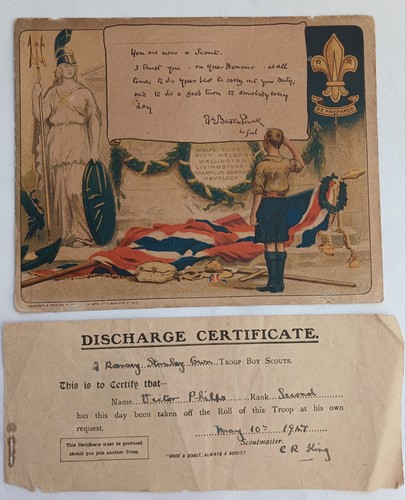 You are now a Scout.
I trust you - on your Honour - at all
times to do your best to carry out your Duty,
and to do a good turn to somebody every
day
BE PREPARED
WOLFE CLIVE
PITT NELSON
WELLINGTON
LIVINGSTONE
FRANKLIN GORDON
HAVELOCK
DISCHARGE CERTIFICATE.
Ramsey Stanley Own TROOP BOY SCOUTS.
This is to Certify that—
Name Victor Phillips Rank Second
has this day been taken off the Roll of this Troop at his own
request. May 10th 1927
Scoutmaster.
This Certificate must be produced
should you join another Troop.
"ONCE A SCOUT, ALWAYS A SCOUT."
C.R. King